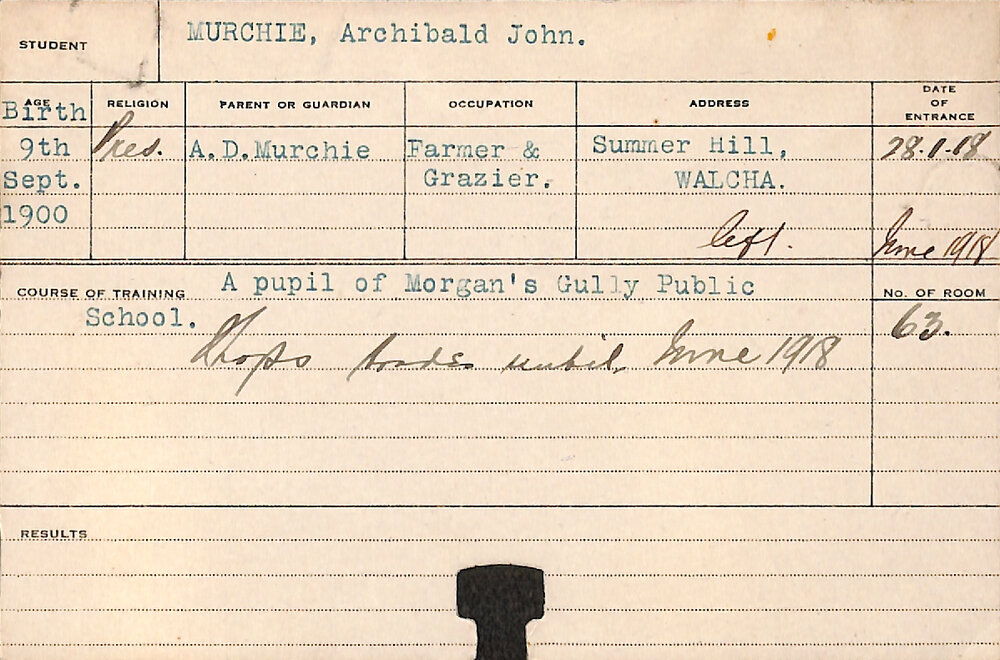 STUDENT MURCHIE, Archibald John.
AGE RELIGION PARENT OR GUARDIAN OCCUPATION ADDRESS DATE OF ENTRANCE
Birth
9th Pres. A.D.Murchie Farmer & Summer Hill, 28.1.18
Sept. Grazier. WALCHA.
1900
left. June 1918
COURSE OF TRAINING A pupil of Morgan's Gully Public No. OF ROOM
School. 63.
trades until June 1918
RESULTS